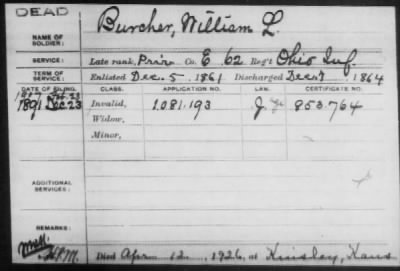 DEAD
NAME OF SOLDIER: Burcher, William L.
SERVICE: Late rank, Priv Co. E. 62 Reg't Ohio Inf.
TERM OF SERVICE: Enlisted Dec. 5 1861 Discharged Dec 7 1864
DATE OF FILING. CLASS. APPLICATION NO. LAW. CERTIFICATE NO.
1891 Dec 23 Invalid, 1.081.193 853.764
Widow,
Minor,
ADDITIONAL SERVICES:
REMARKS:
Died Apr. 12, 1926, at Kinsley, Kans